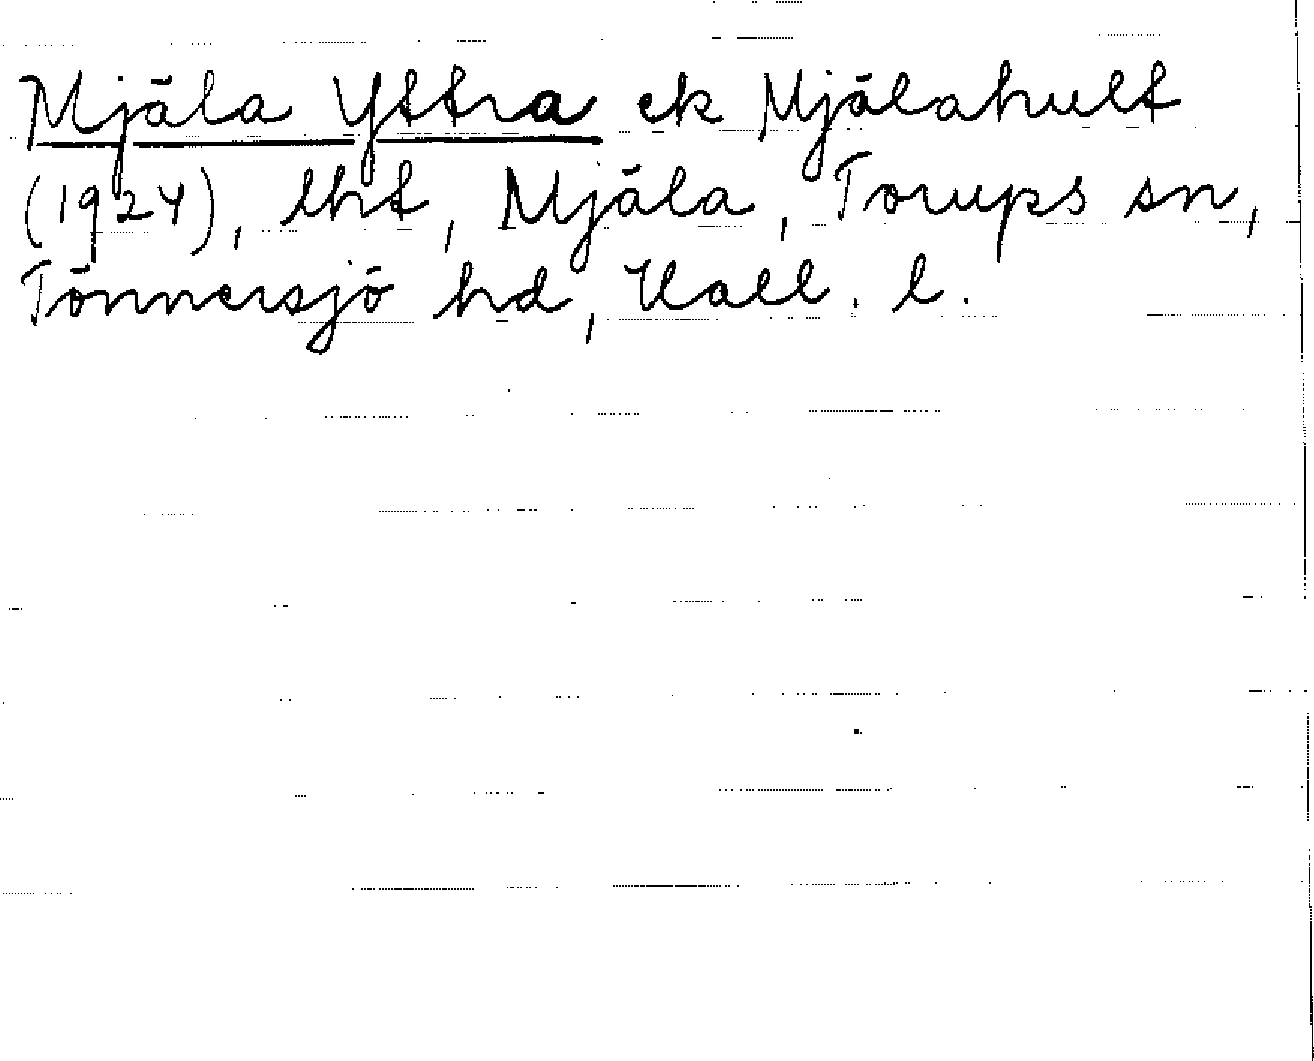 Mjäla Yttra ek Mjälahult
(1924), lht, Mjäla, Torups sn,
Tönnersjö hd, Hall. l.